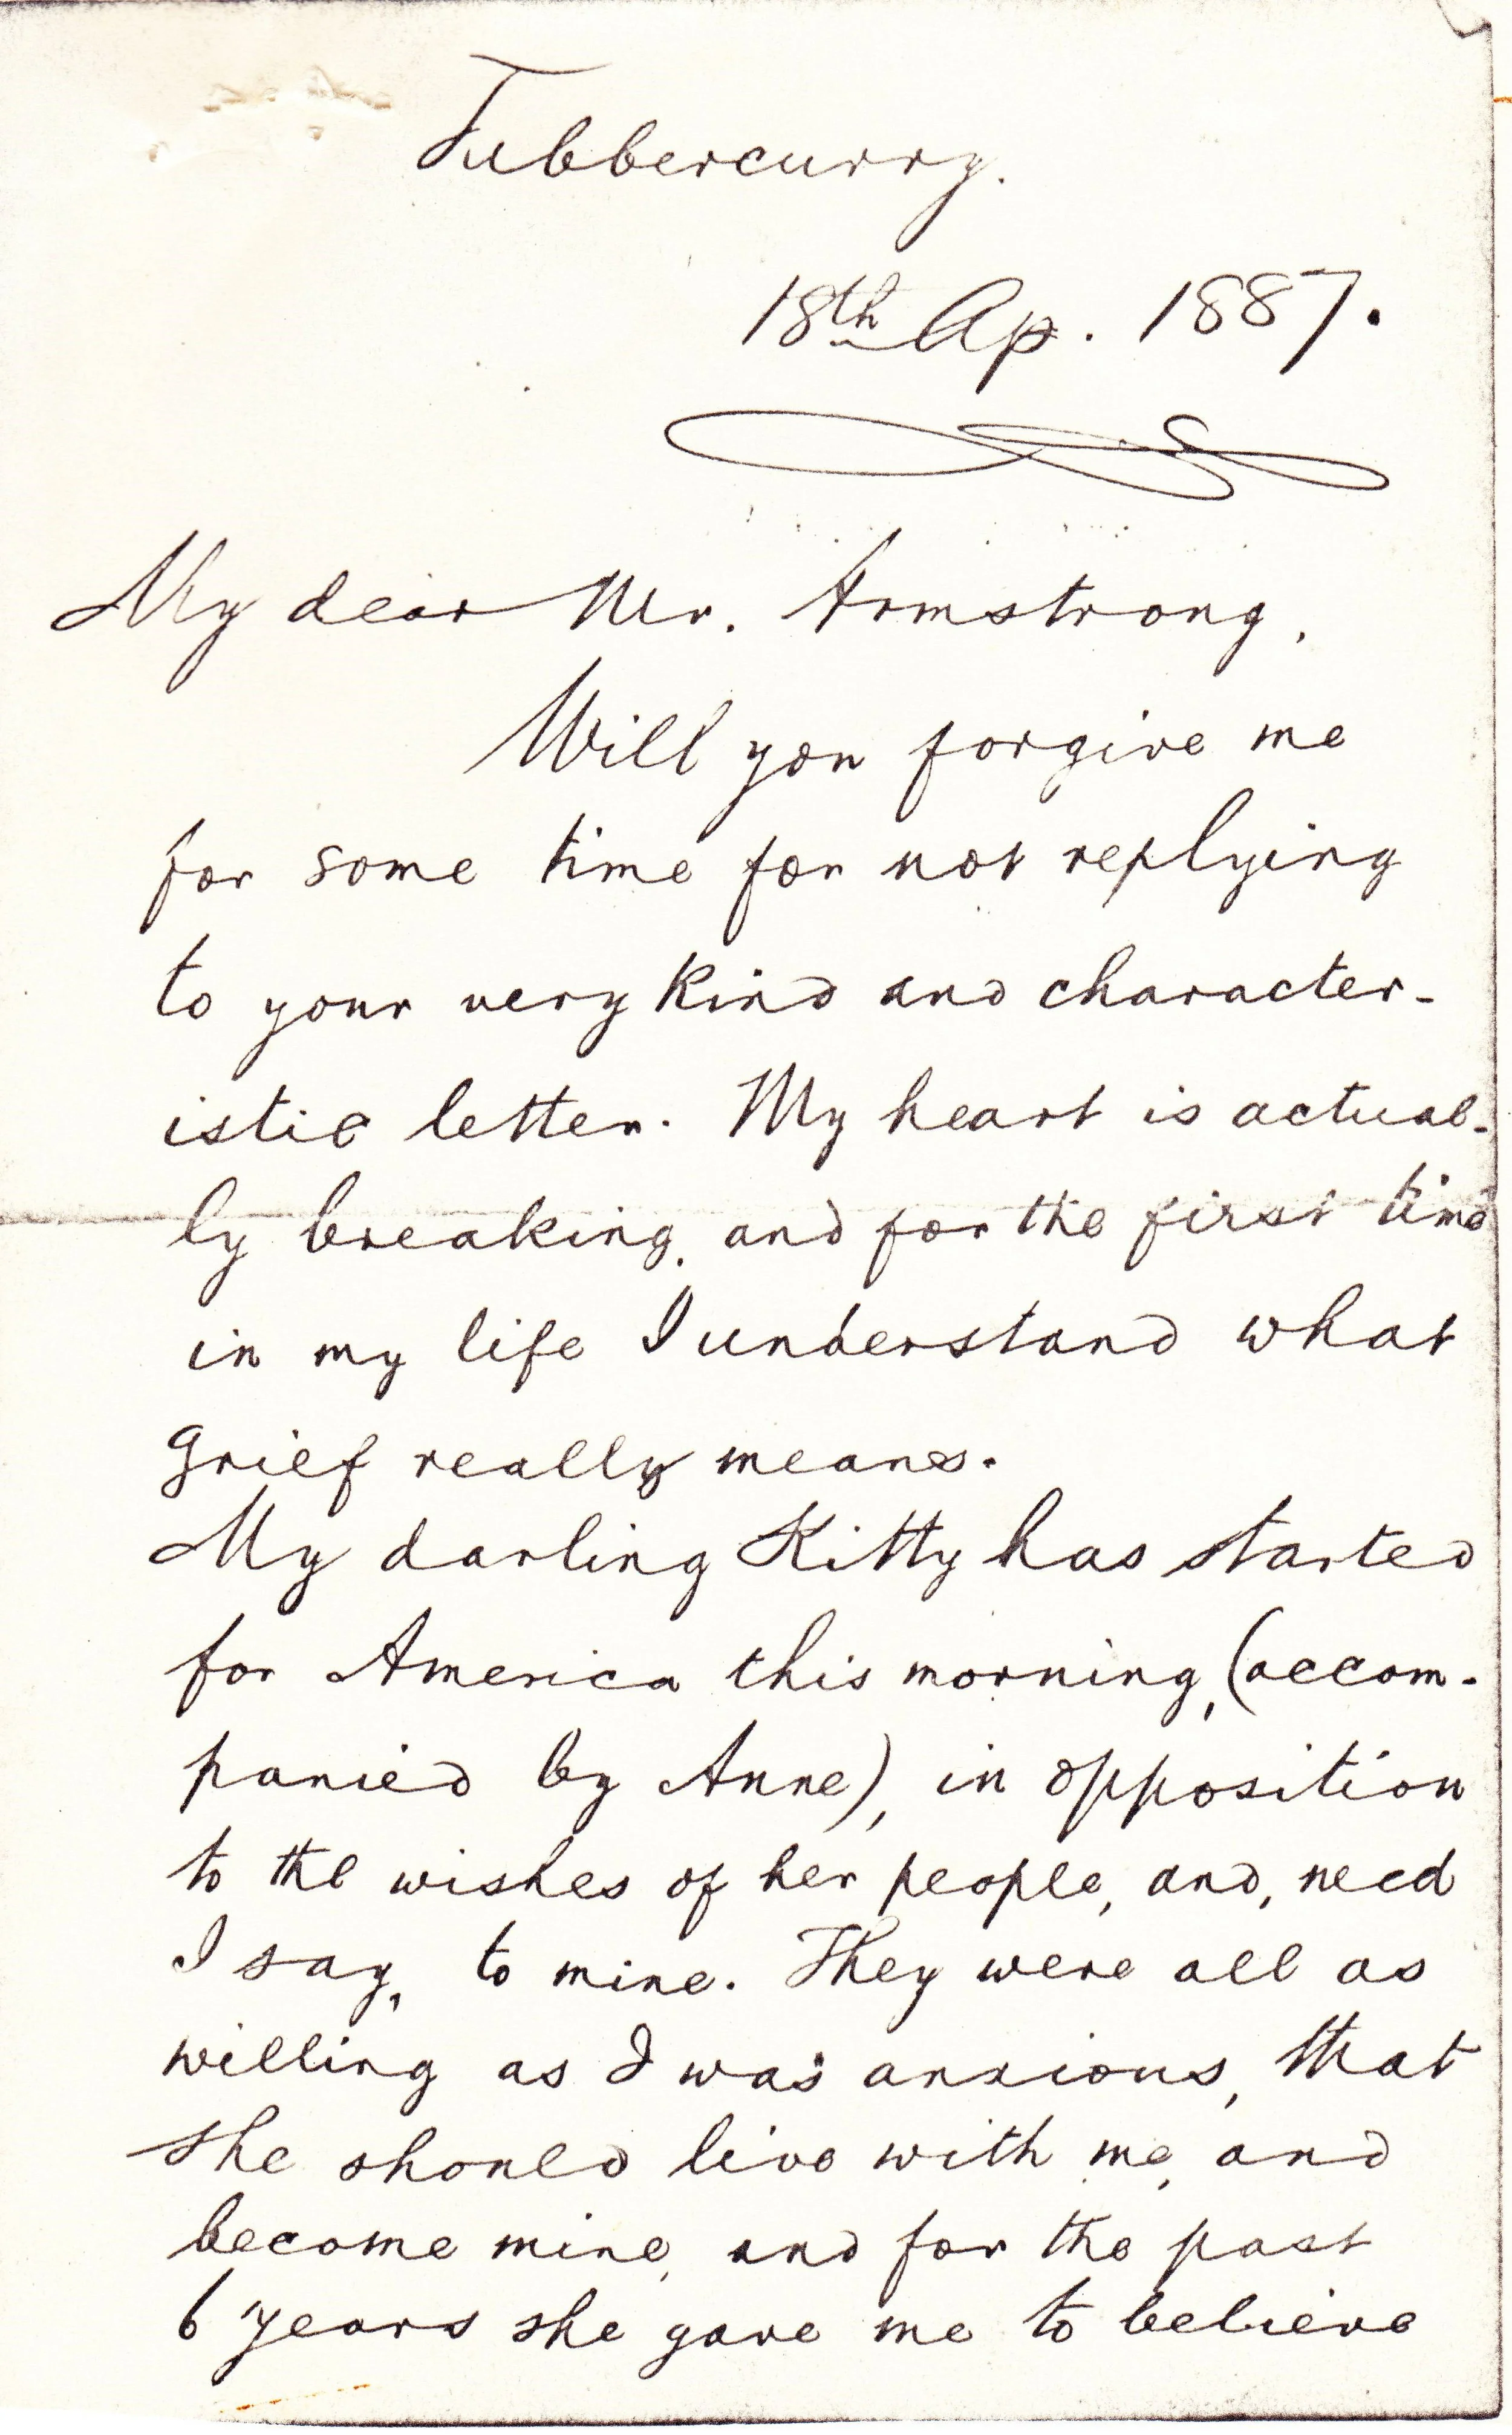 Tubbercurry.
18th Ap. 1887.
My dear Mr. Armstrong,
Will you forgive me
for some time for not replying
to your very kind and character-
istic letter. My heart is actual-
ly breaking, and for the first time
in my life I understand what
grief really means.
My darling Kitty has started
for America this morning, (accom-
panied by Anne), in opposition
to the wishes of her people, and, need
I say, to mine. They were all as
willing as I was anxious, that
she should live with me, and
become mine, and for the past
6 years she gave me to believe